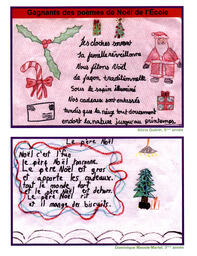 Gagnants des poèmes de Noël de l'École
Les cloches sonnent
La famille réveillonne
Nous fêtons Noël
de façon traditionnelle
Sous le sapin illuminé
Nos cadeaux sont entassés
tandis que la neige tout doucement
endort la nature jusqu'au printemps.
5ème année
Le père Noël
Noël c'est l'hiver
le père Noël
Le père Noël est gros
et apporte les cadeaux.
tout le monde dort
et le père Noël est dehors.
Le père Noël rit
et il mange des biscuits.
Dominique Massie-Martel, 3ème année